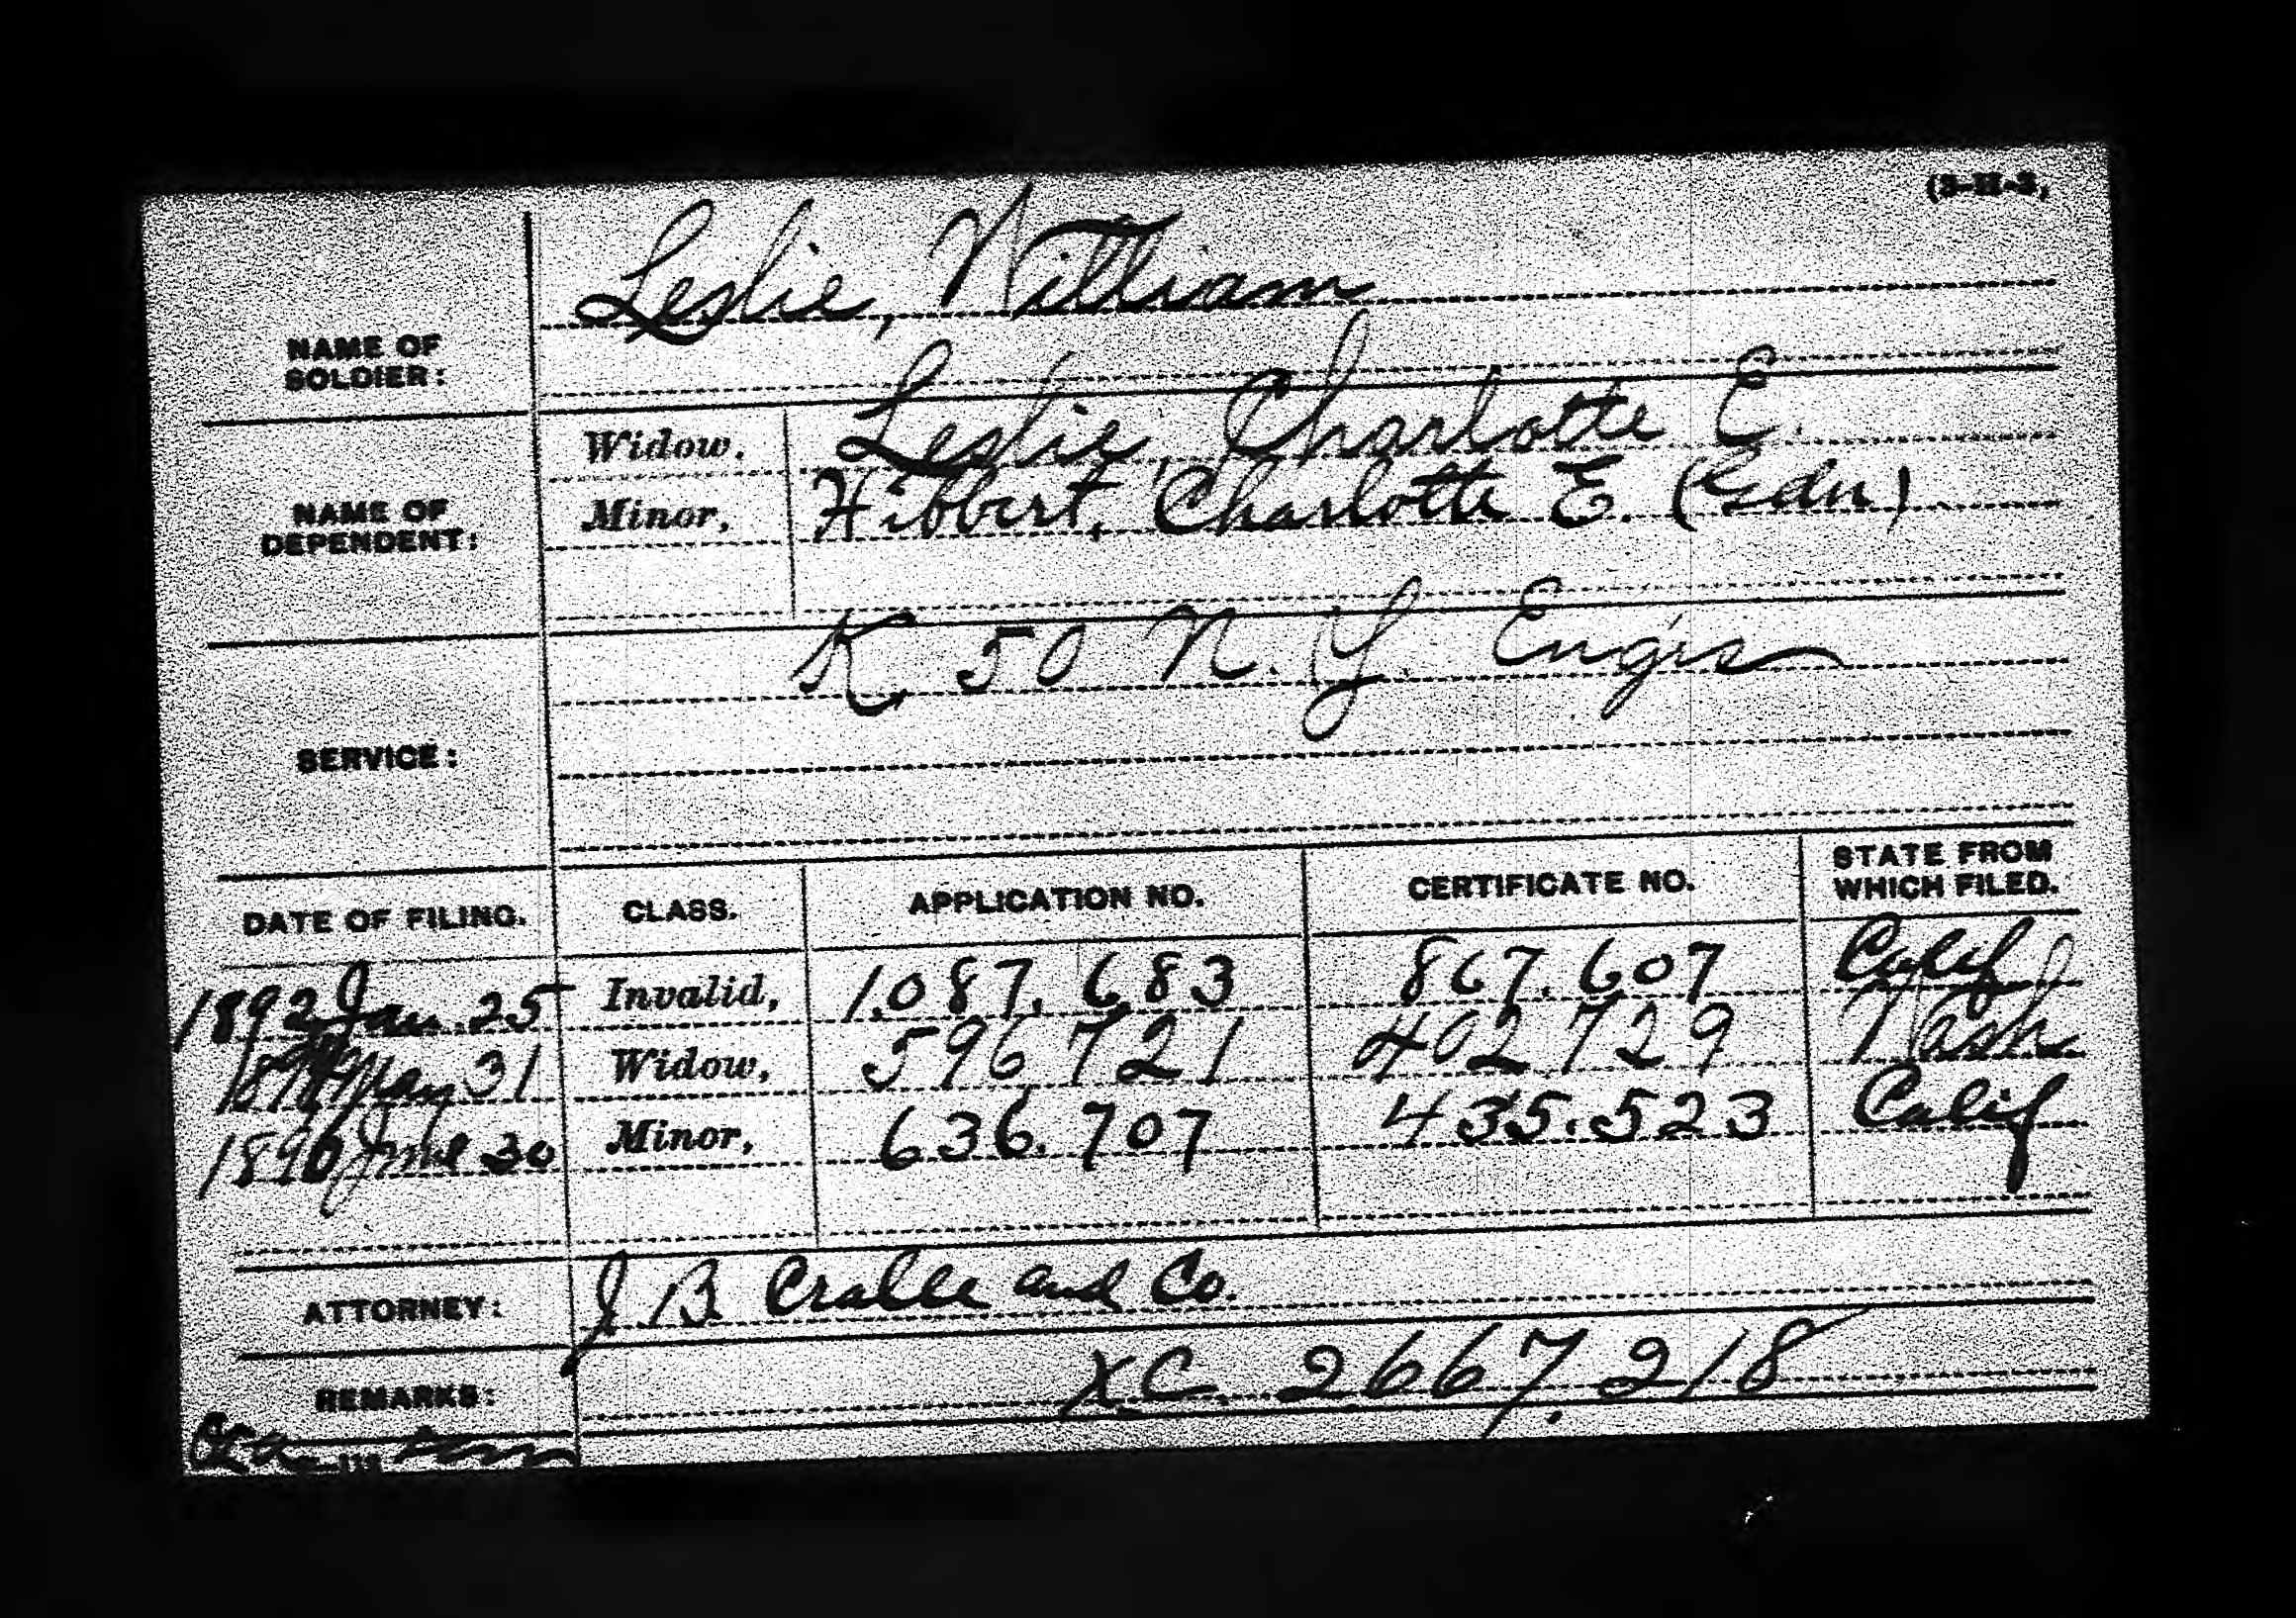 (3-H-3)
Leslie, William
NAME OF
SOLDIER:
Widow, Leslie, Charlotte E.
NAME OF
DEPENDENT:
Minor, Hibbert, Charlotte E. (Gdn)
K 50 N.Y. Engrs
SERVICE:
DATE OF FILING. CLASS. APPLICATION NO. CERTIFICATE NO. STATE FROM
WHICH FILED.
1892 Jan. 25 Invalid, 1.087.683 867.607 Calif
1894 May 31 Widow, 596721 402729 Wash
1896 June 30 Minor, 636.707 435.523 Calif
ATTORNEY: J B Cralle and Co.
REMARKS: XC. 2667.218